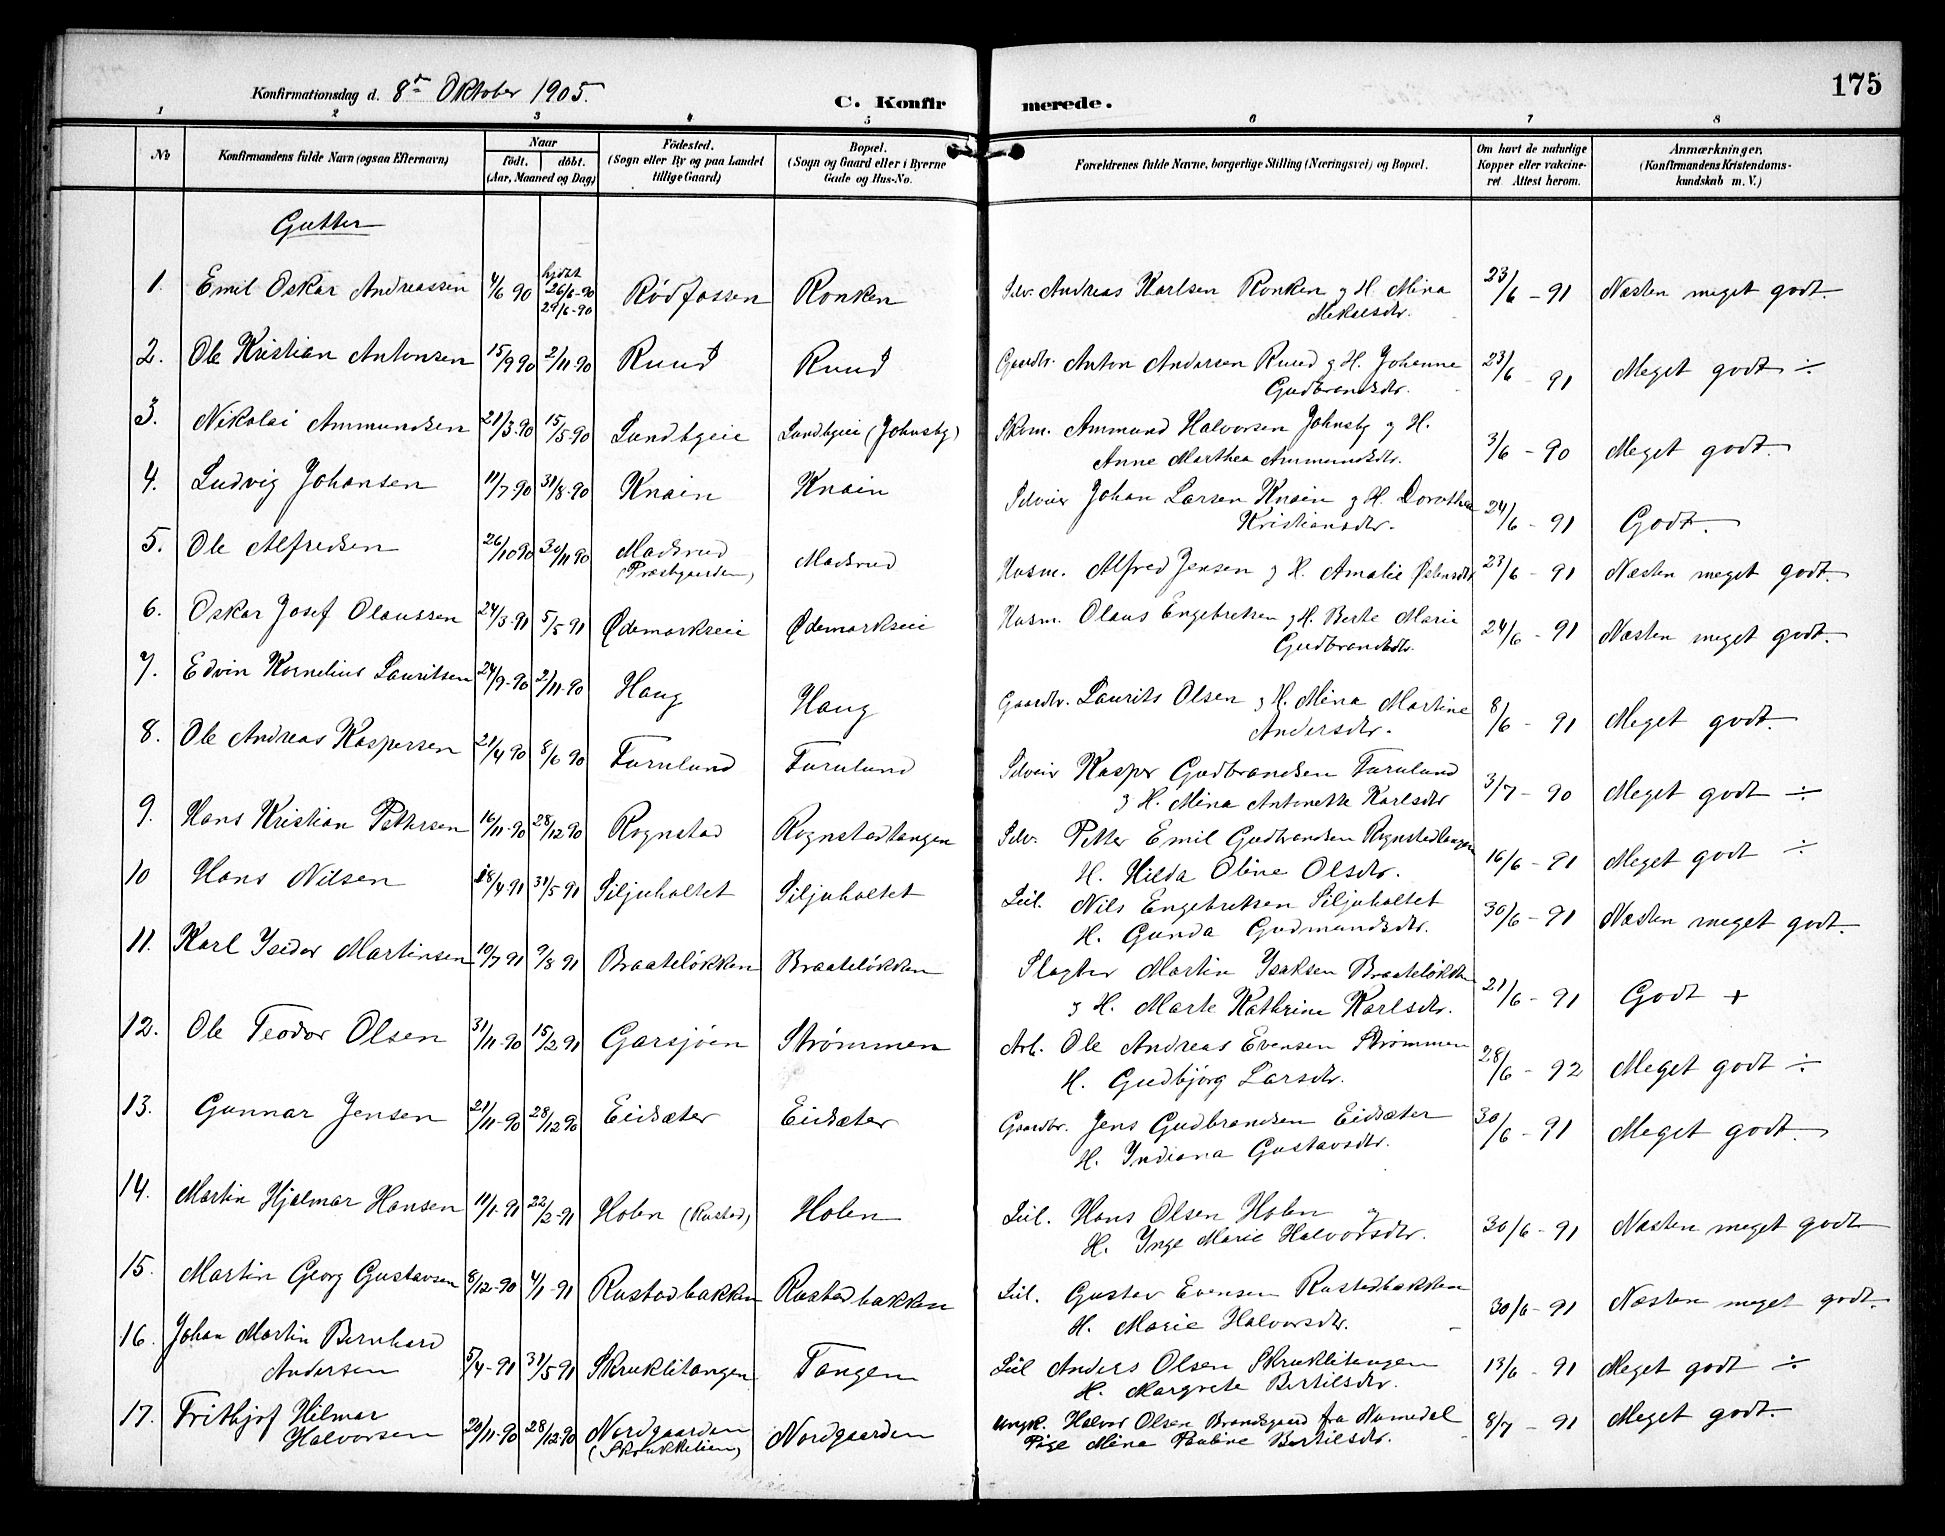 175
Konfirmationsdag d. 8de Oktober 1905.
C. Konfirmerede.
1 2 3 4 5 6 7 8
No
Konfirmandens fulde Navn (ogsaa Efternavn)
Naar
født. døbt.
(Aar, Maaned og Dag)
Fødested.
(Sogn eller By og paa Landet
tillige Gaard)
Bopæl.
(Sogn og Gaard eller i Byerne
Gade og Hus-No.
Forældrenes fulde Navne, borgerlige Stilling (Næringsvei) og Bopæl.
Om havt de naturlige
Kopper eller vakcineret
Attest herom.
Anmærkninger,
(Konfirmandens Kristendomskundskab
m. V.)
Gutter
1. Emil Oskar Andreassen 4/6 90 hjdbt 26/6-90 29/6-90 Rødfossen Ronken Selv. Andreas Karlsen Ronken g H. Mina 23/6 - 91 Næsten meget godt.
Mikelsdtr.
2. Ole Kristian Antonsen 15/9 90 2/11-90 Ruud Ruud Gaardbr. Anton Andersen Ruud g H. Johanne 23/6 - 91 Meget godt ÷
Gudbrandsdtr.
3. Nikolai Ammundsen 21/3-90 15/5-90 Lundbyeie Lundbyeie (Johnsby) Skom. Ammund Halvorsen Johnsby g H. 3/6 - 90 Meget godt.
Anne Marthea Ammundsdtr.
4. Ludvig Johansen 11/7-90 31/8-90 Knain Knain Selveier Johan Larsen Knain g H. Dorothea 24/6 - 91 Godt.
Kristiansdtr.
5. Ole Alfredsen 26/10 90 30/11 90 Madsrud Madsrud Husm. Alfred Jensen g H. Amalie Østensdtr 23/6 - 91 Næsten meget godt.
(Præstgaarden)
6. Oskar Josef Olaussen 24/3-91 5/5-91 Ødemarkseie Ødemarkseie Husm. Olaus Engebretsen g H. Berte Marie 24/6 - 91 Næsten meget godt.
Gudbrandsdtr.
7. Edvin Kornelius Lauritsen 24/9-90 2/11-90 Haug Haug Gaardbr. Laurits Olsen g H. Mina Martine 8/6 - 91 Meget godt.
Andersdtr.
8. Ole Andreas Kaspersen 21/4 90 8/6 90 Furulund Furulund Selveier Kasper Gudbrandsen Furulund 3/7 - 90 Meget godt ÷
g H. Mina Antonette Karlsdtr
9. Hans Kristian Pettersen 16/11-90 28/12 90 Rognstad Rognstadtangen Selv. Petter Emil Gudbrandsen Rognstadtangen 16/6 - 91 Meget godt ÷
H. Hilda Oline Olsdtr.
10 Hans Nilsen 18/4-91 31/5 91 Siljuholtet Siljuholtet Leil. Nils Engebretsen Siljuholtet 30/6 - 91 Næsten meget godt.
H. Gunda Gudmundsdtr.
11. Karl Isidor Martinsen 10/7 91 9/8 91 Braateløkken Braateløkken Slagter Martin Isaksen Braateløkken 21/6 - 91 Godt +
g H. Marte Kathrine Karlsdtr.
12. Ole Teodor Olsen 31/11-90 15/2 91 Garsjøen Strømmen Arb. Ole Andreas Evensen Strømmen 28/6 - 92 Meget godt ÷
H. Gudbjørg Larsdtr.
13. Gunnar Jensen 21/11-90 28/12 90 Eidsæter Eidsæter Gaardbr. Jens Gudbrandsen Eidsæter 30/6 - 91 Meget godt.
H. Indiana Gustavsdtr.
14. Martin Hjalmar Hansen 11/1-91 22/2-91 Holen (Rustad) Holen Leil. Hans Olsen Holen og 30/6 - 91 Næsten meget godt
H. Inge Marie Halvorsdtr.
15. Martin Georg Gustavsen 8/12-90 4/1-91 Rustadbakken Rustadbakken Leil. Gustav Evensen Rustadbakken 30/6 - 91 Næsten meget godt.
H. Marie Halvorsdtr.
16. Johan Martin Bernhard
Andersen 5/4-91 31/5 91 Skruklitangen Tangen Leil Anders Olsen Skruklitangen 13/6 - 91 Meget godt ÷
H. Margrete Bertilsdtr.
17. Frithjof Hilmar
Halvorsen 20/11-90 28/12 90 Nordgaarden Nordgaarden Ungk. Halvor Olsen Brandsgaard fra Numedal 8/7 - 91 Meget godt.
(Skrukkelien) Pige Mina Pauline Bertilsdtr.